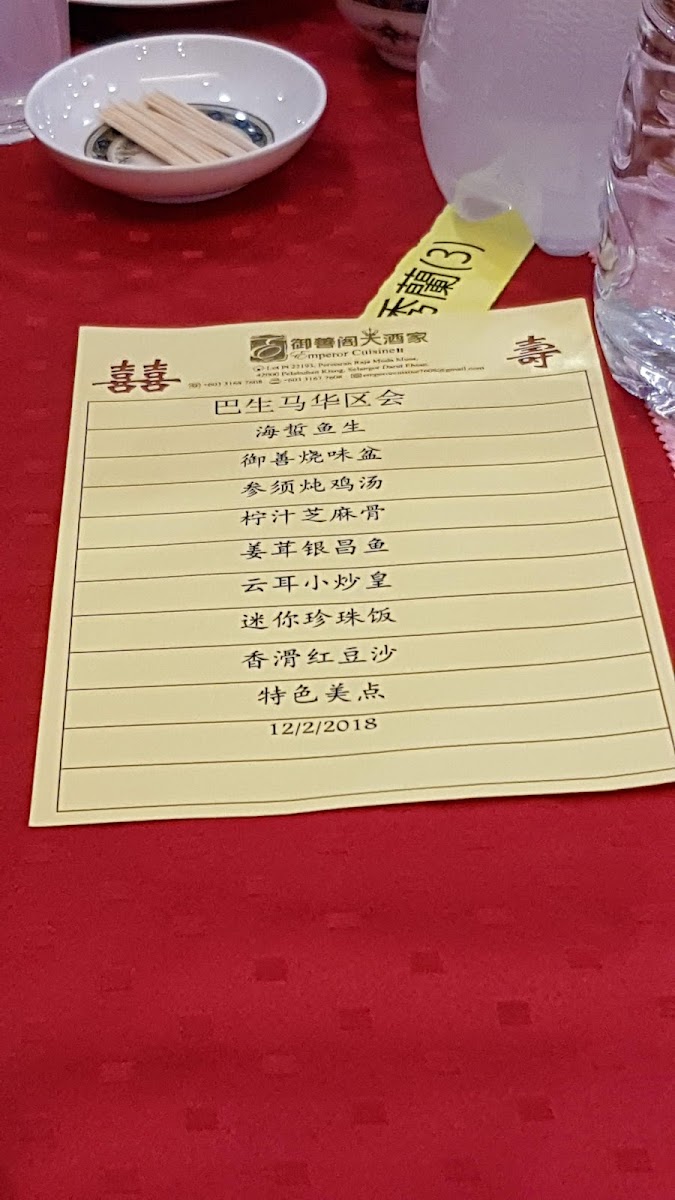 秀蘭(3)
御善阁大酒家
Emperor Cuisine
Lot PT 22193, Persiaran Raja Muda Musa,
42000 Pelabuhan Klang, Selangor Darul Ehsan.
+603 3168 7608 +603 3167 7608
囍 壽
巴生马华区会
海蜇鱼生
御善烧味盆
参须炖鸡汤
柠汁芝麻骨
姜茸银昌鱼
云耳小炒皇
迷你珍珠饭
香滑红豆沙
特色美点
12/2/2018